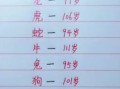 虎 — 106岁
蛇 — 94岁
牛 — 111岁
兔 — 99岁
狗 — 101岁